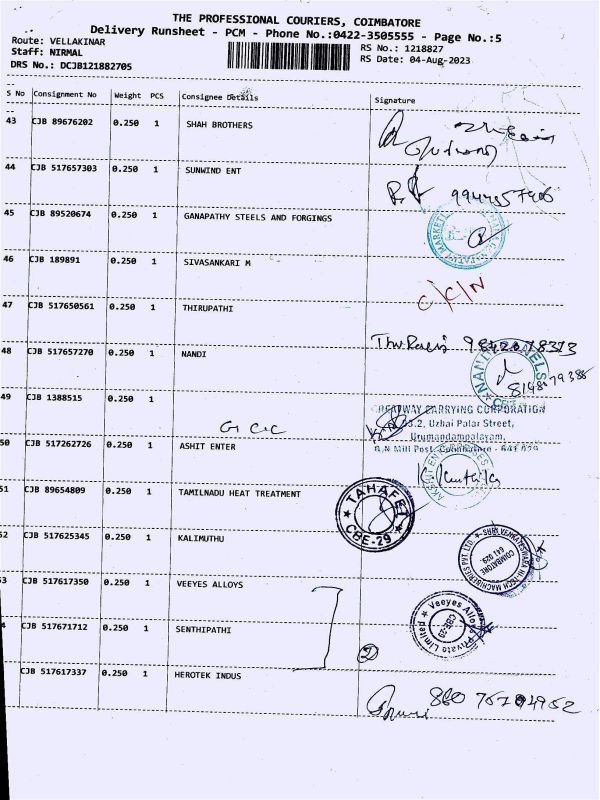 THE PROFESSIONAL COURIERS, COIMBATORE
Delivery Runsheet - PCM - Phone No.:0422-3505555 - Page No.:5
Route: VELLAKINAR
RS No.: 1218827
Staff: NIRMAL
RS Date: 04-Aug-2023
DRS No.: DCJB121882705
S No Consignment No Weight PCS Consignee Details Signature
43 CJB 89676202 0.250 1 SHAH BROTHERS
44 CJB 517657303 0.250 1 SUNWIND ENT
45 CJB 89520674 0.250 1 GANAPATHY STEELS AND FORGINGS
46 CJB 189891 0.250 1 SIVASANKARI M
C/C/N
47 CJB 517650561 0.250 1 THIRUPATHI
48 CJB 517657270 0.250 1 NANDI
NANDI PANELS
CBE
49 CJB 1388515 0.250 1
CARRYING CORPORATION
Uzhai Palar Street,
Urumandampalayam,
G.N Mill Post, Coimbatore - 641 029
50 CJB 517262726 0.250 1 ASHIT ENTER
51 CJB 89654809 0.250 1 TAMILNADU HEAT TREATMENT
TAHAFET
CBE-29
52 CJB 517625345 0.250 1 KALIMUTHU
COIMBATORE
641 029
53 CJB 517617350 0.250 1 VEEYES ALLOYS
Veeyes Alloys Private Limited
CBE-29
CJB 517671712 0.250 1 SENTHIPATHI
2
CJB 517617337 0.250 1 HEROTEK INDUS